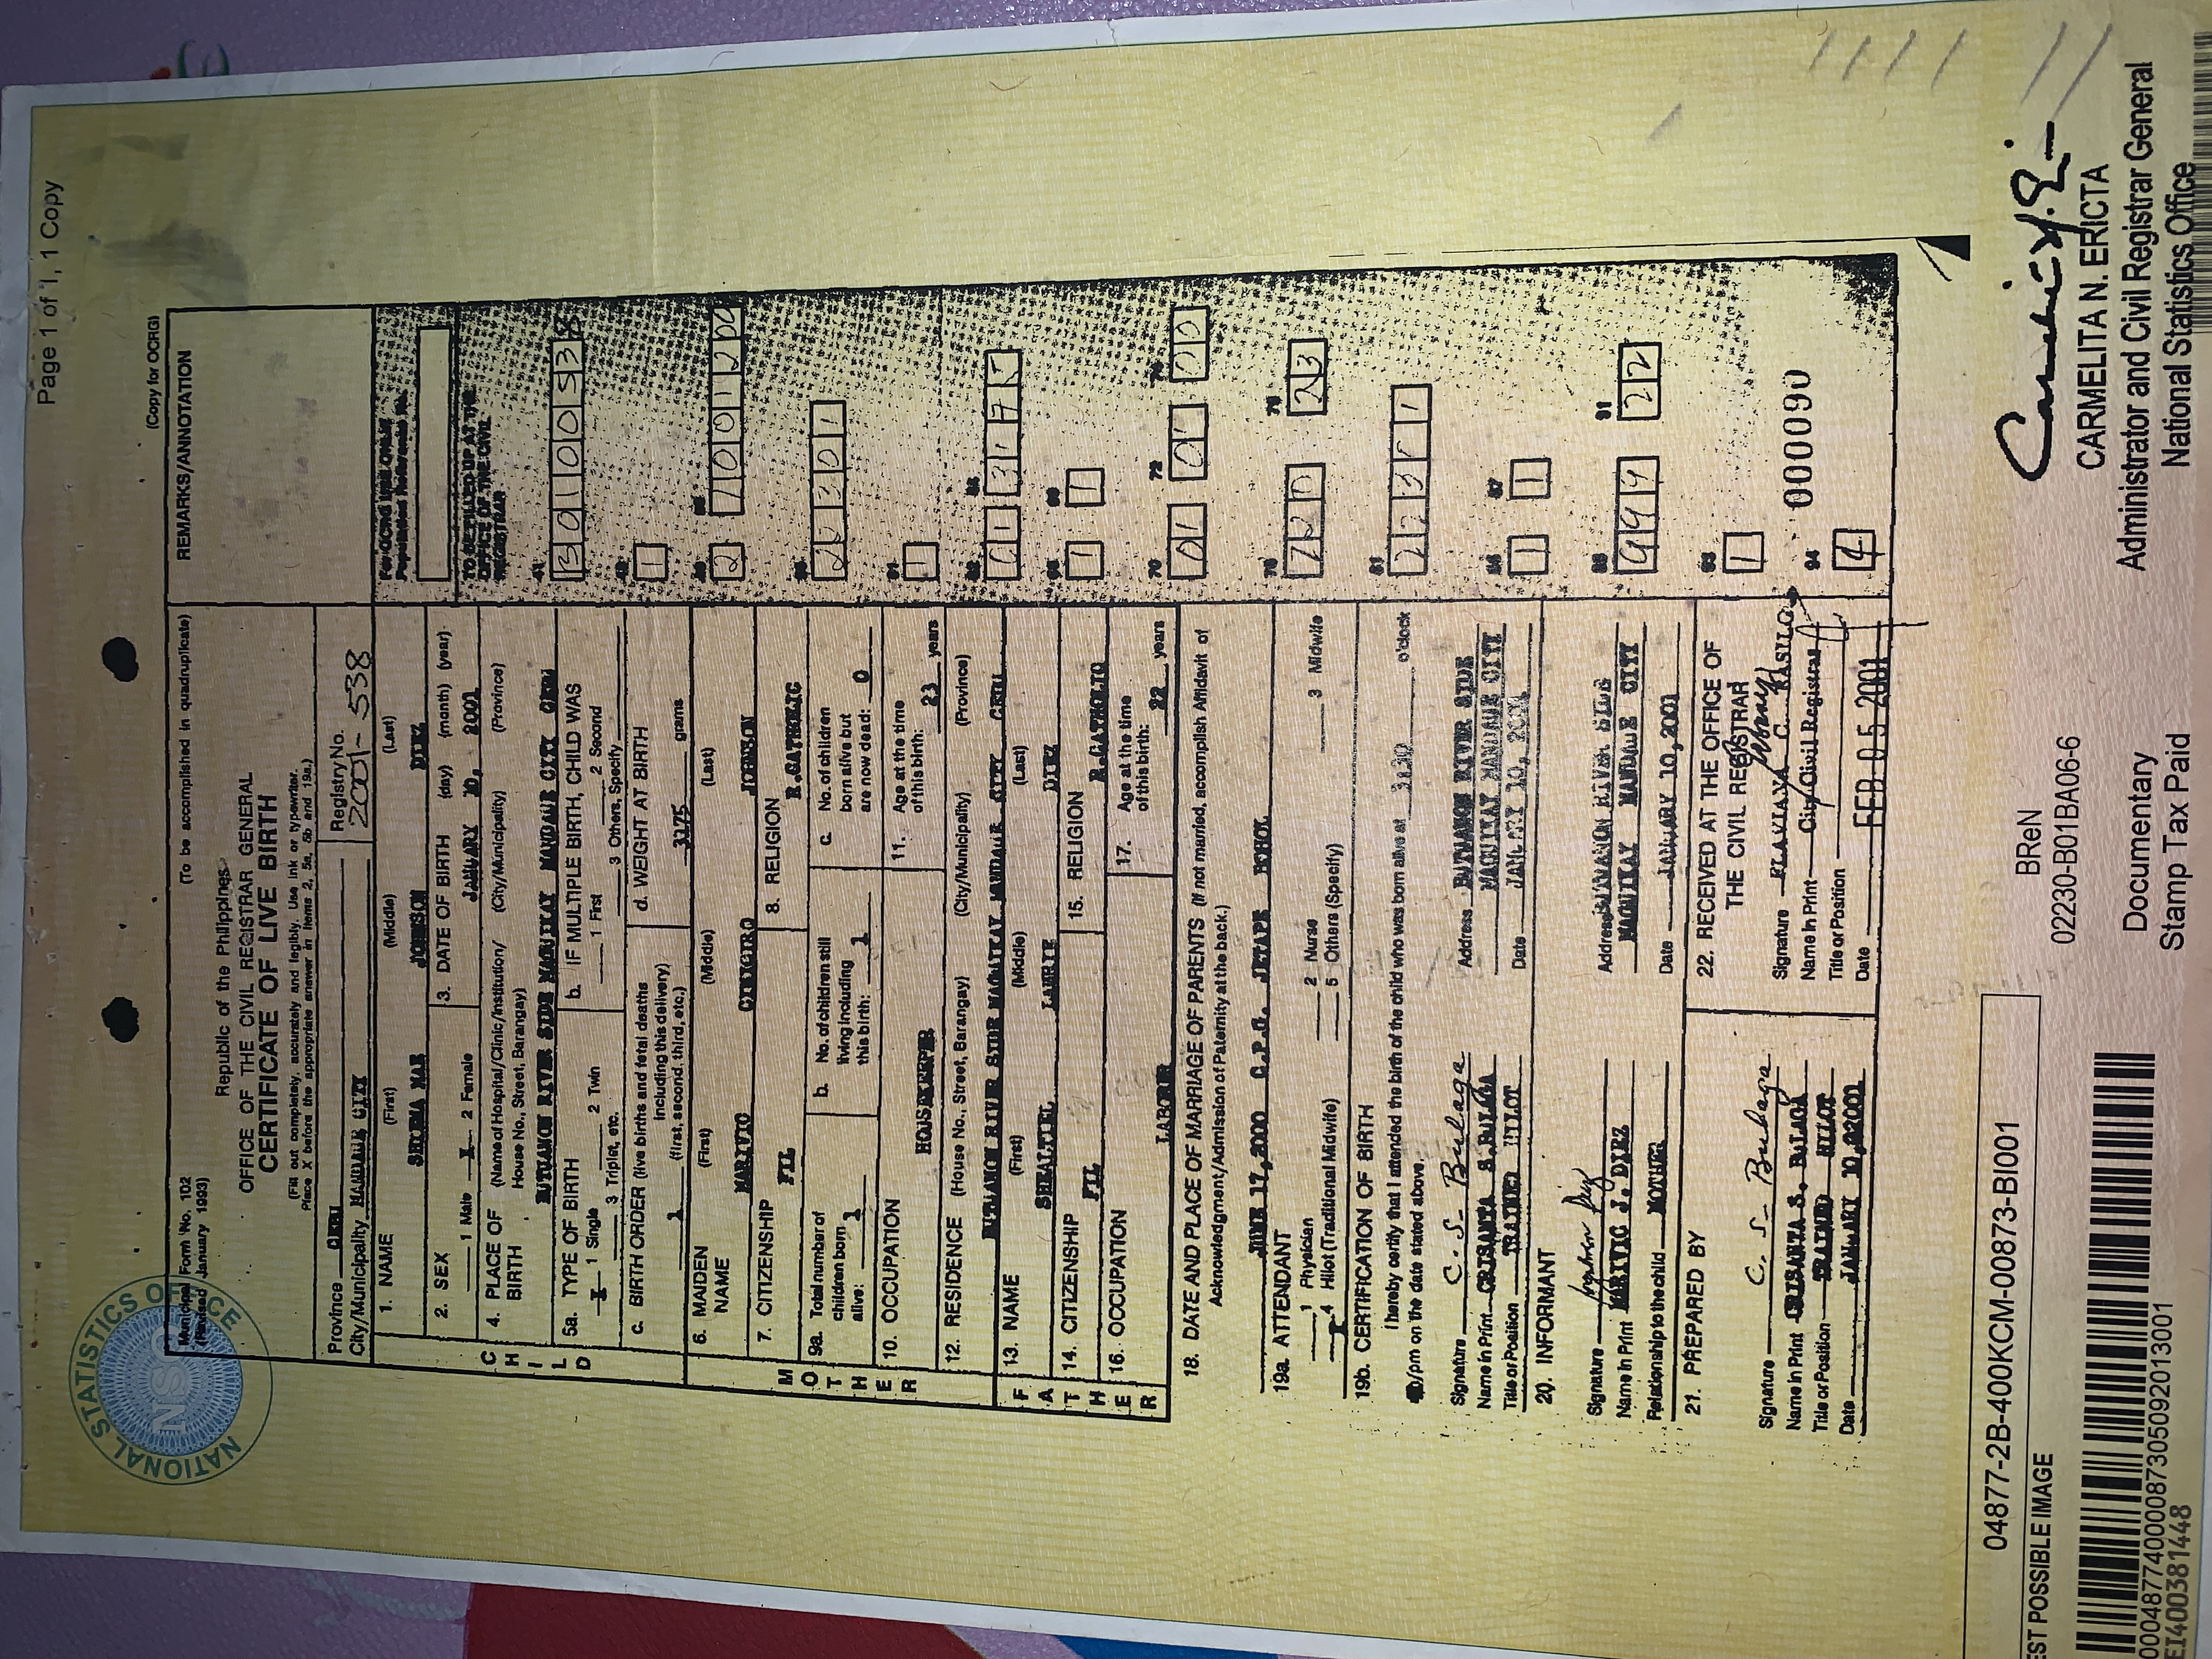 Page 1 of 1, 1 Copy
(Copy for OCRG)
NATIONAL STATISTICS OFFICE
NSO
Municipal Form No. 102
(Revised January 1993)
(To be accomplished in quadruplicate)
REMARKS/ANNOTATION
Republic of the Philippines
OFFICE OF THE CIVIL REGISTRAR GENERAL
CERTIFICATE OF LIVE BIRTH
(Fill out completely, accurately and legibly. Use ink or typewriter.
Place X before the appropriate answer in items 2, 5a, 5b and 19a.)
Province CEBU
City/Municipality MANDAUE CITY
Registry No.
2001-538
For OCRG USE ONLY:
Population Reference No.
TO BE FILLED UP AT THE
OFFICE OF THE CIVIL
REGISTRAR
CHILD
1. NAME (First) (Middle) (Last)
MAE JOHNSON DIEZ
2. SEX
1 Male X 2 Female
3. DATE OF BIRTH (day) (month) (year)
JANUARY 10, 2001
4. PLACE OF BIRTH (Name of Hospital/Clinic/Institution/ House No., Street, Barangay) (City/Municipality) (Province)
BUTUANON RIVER SIDE MAGUIKAY MANDAUE CITY CEBU
5a. TYPE OF BIRTH
X 1 Single 2 Twin
3 Triplet, etc.
b. IF MULTIPLE BIRTH, CHILD WAS
1 First 2 Second
3 Others, Specify
c. BIRTH ORDER (live births and fetal deaths including this delivery)
1 (first, second, third, etc.)
d. WEIGHT AT BIRTH
3175 grams
MOTHER
6. MAIDEN NAME (First) (Middle) (Last)
MARIVIC JOHNSON
7. CITIZENSHIP
FIL
8. RELIGION
R.CATHOLIC
9a. Total number of children born alive: 1
b. No. of children still living including this birth: 1
c. No. of children born alive but are now dead: 0
10. OCCUPATION
HOUSEKEEPER
11. Age at the time of this birth: 23 years
12. RESIDENCE (House No., Street, Barangay) (City/Municipality) (Province)
BUTUANON RIVER SIDE MAGUIKAY MANDAUE CITY CEBU
FATHER
13. NAME (First) (Middle) (Last)
DIEZ
14. CITIZENSHIP
FIL
15. RELIGION
R.CATHOLIC
16. OCCUPATION
LABORER
17. Age at the time of this birth: 22 years
18. DATE AND PLACE OF MARRIAGE OF PARENTS (If not married, accomplish Affidavit of Acknowledgment/Admission of Paternity at the back.)
JUNE 17, 2000 C.P.G. JETAFE BOHOL
19a. ATTENDANT
1 Physician 2 Nurse 3 Midwife
X 4 Hilot (Traditional Midwife) 5 Others (Specify)
19b. CERTIFICATION OF BIRTH
I hereby certify that I attended the birth of the child who was born alive at 3:30 o'clock
/pm on the date stated above.
Signature C. S. Bulaga
Name in Print CRISANTA S. BULAGA
Title or Position TRAINED HILOT
Address BUTUANON RIVER SIDE
MAGUIKAY MANDAUE CITY
Date JANUARY 10, 2001
20. INFORMANT
Signature
Name in Print MARIVIC J. DIEZ
Relationship to the child MOTHER
Address BUTUANON RIVER SIDE
MAGUIKAY MANDAUE CITY
Date JANUARY 10, 2001
21. PREPARED BY
Signature C. S. Bulaga
Name in Print CRISANTA S. BULAGA
Title or Position TRAINED HILOT
Date JANUARY 10, 2001
22. RECEIVED AT THE OFFICE OF
THE CIVIL REGISTRAR
Signature
Name in Print FLAVIANA C.
Title or Position City Civil Registrar
Date FEB 05 2001
0000090
04877-2B-400KCM-00873-BI001
EST POSSIBLE IMAGE
BReN
02230-B01BA06-6
Documentary
Stamp Tax Paid
CARMELITA N. ERICTA
Administrator and Civil Registrar General
National Statistics Office
EI400381448